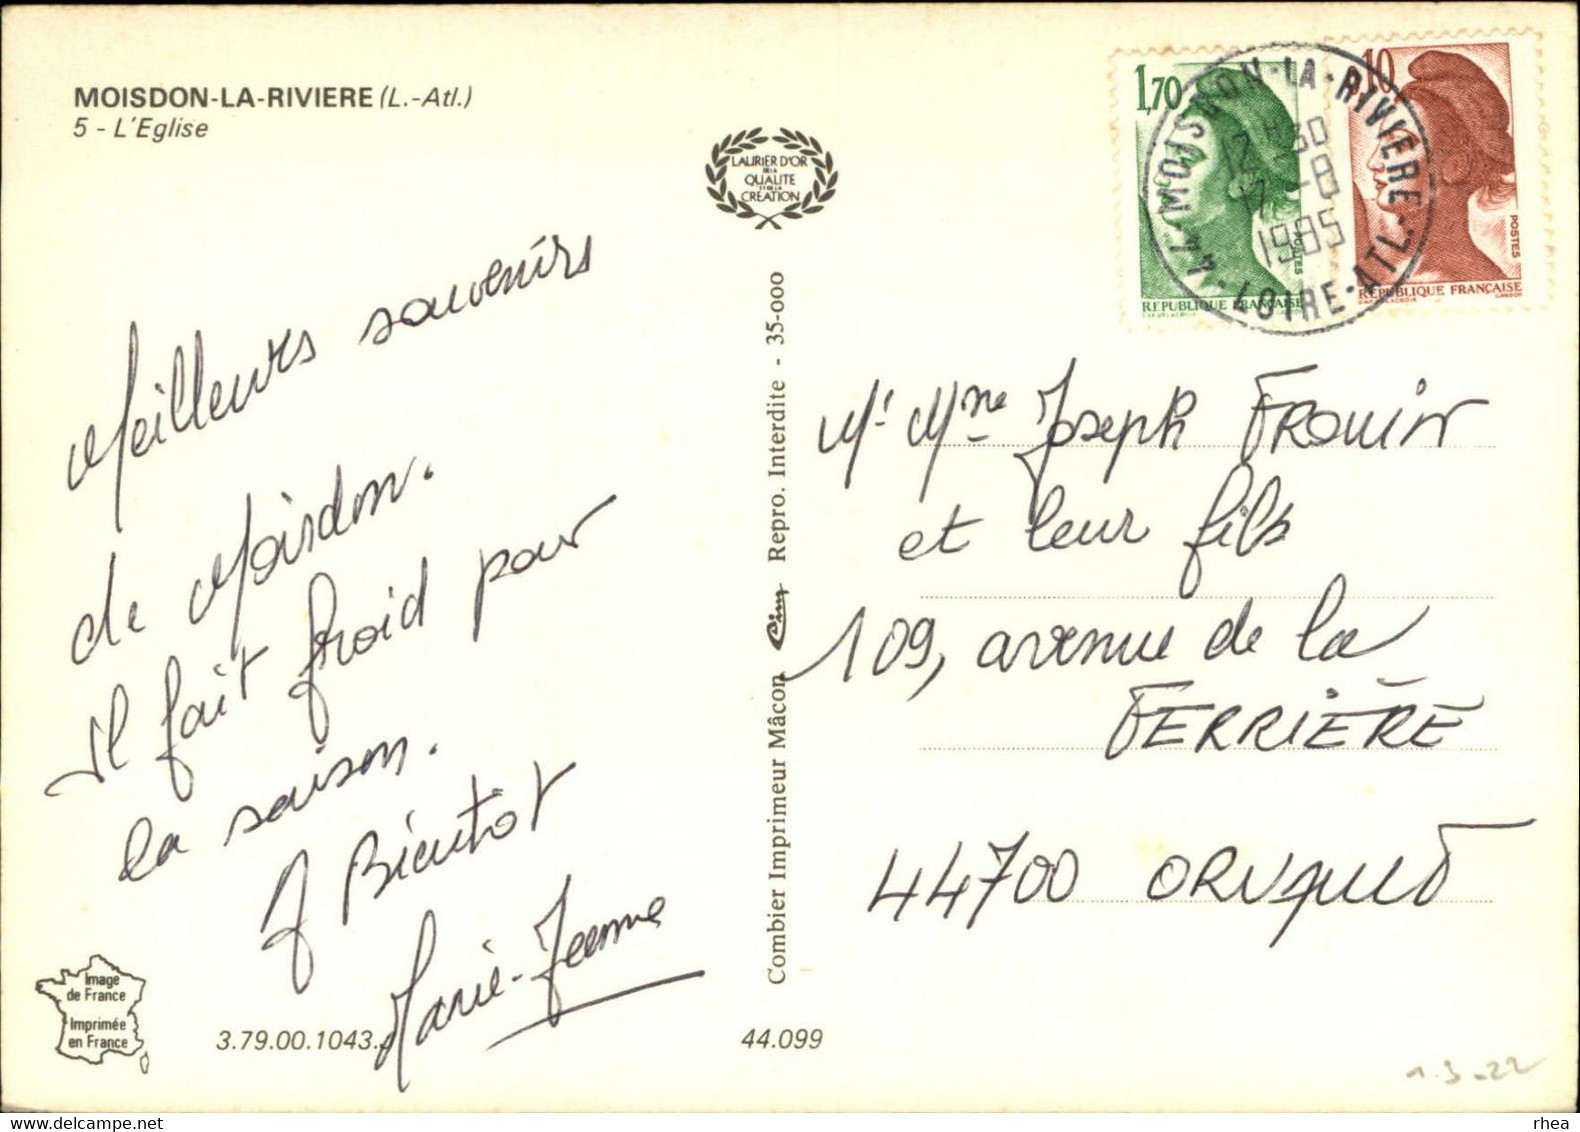 MOISDON-LA-RIVIERE (L.-Atl.)
5 - L'Eglise
LAURIER D'OR
DE LA
QUALITE
ET DE LA
CREATION
1,70
REPUBLIQUE FRANÇAISE
POSTES
0,10
POSTES
REPUBLIQUE FRANÇAISE
44 MOISDON-LA-RIVIERE
12 H 30
17 -8
1985
LOIRE-ATL.
Meilleurs souvenirs
de Moisdon.
Il fait froid pour
la saison.
A Bientot
Marie-Jeanne
Mr Mme Joseph FROUIN
et leur fils
109, avenue de la
FERRIÈRE
44700 ORVAULT
Combier Imprimeur Mâcon Cim Repro. Interdite - 35-000
Image
de France
Imprimée
en France
3.79.00.1043.
44.099
1.3.22
delcampe.net
rhea